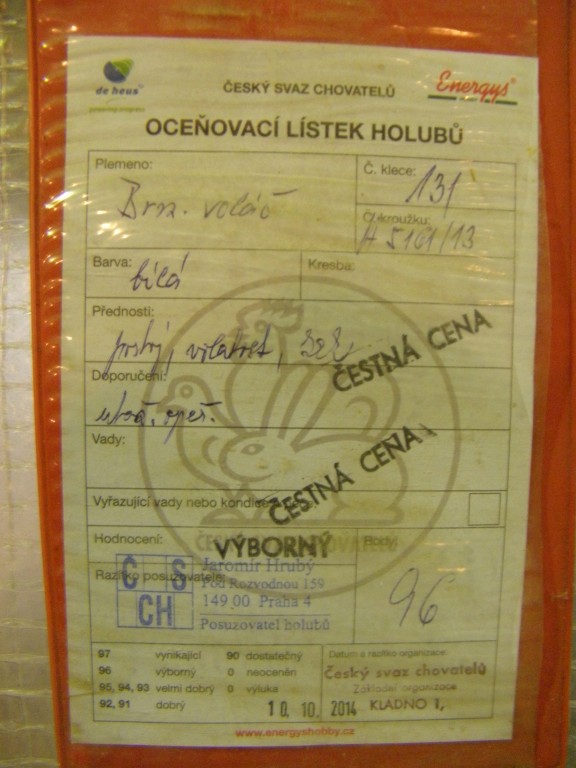 de heus
ČESKÝ SVAZ CHOVATELŮ
Energys
OCEŇOVACÍ LÍSTEK HOLUBŮ
Plemeno:
Brn. voláč
Č. klece:
131
Č. kroužku:
Barva:
bílá
Kresba:
Přednosti:
postoj,
ČESTNÁ CENA
Doporučení:
Vady:
ČESTNÁ CENA
Vyřazující vady nebo kondice
Hodnocení:
VÝBORNÝ
Body:
96
Razítko posuzovatele:
C S
CH
Jaromír Hrubý
Pod Rozvodnou 159
149 00 Praha 4
Posuzovatel holubů
97 vynikající 90 dostatečný
96 výborný 0 neoceněn
95, 94, 93 velmi dobrý 0 výluka
92, 91 dobrý
10. 10. 2014
Datum a razítko organizace:
Český svaz chovatelů
Základní organizace
KLADNO 1,
www.energyshobby.cz